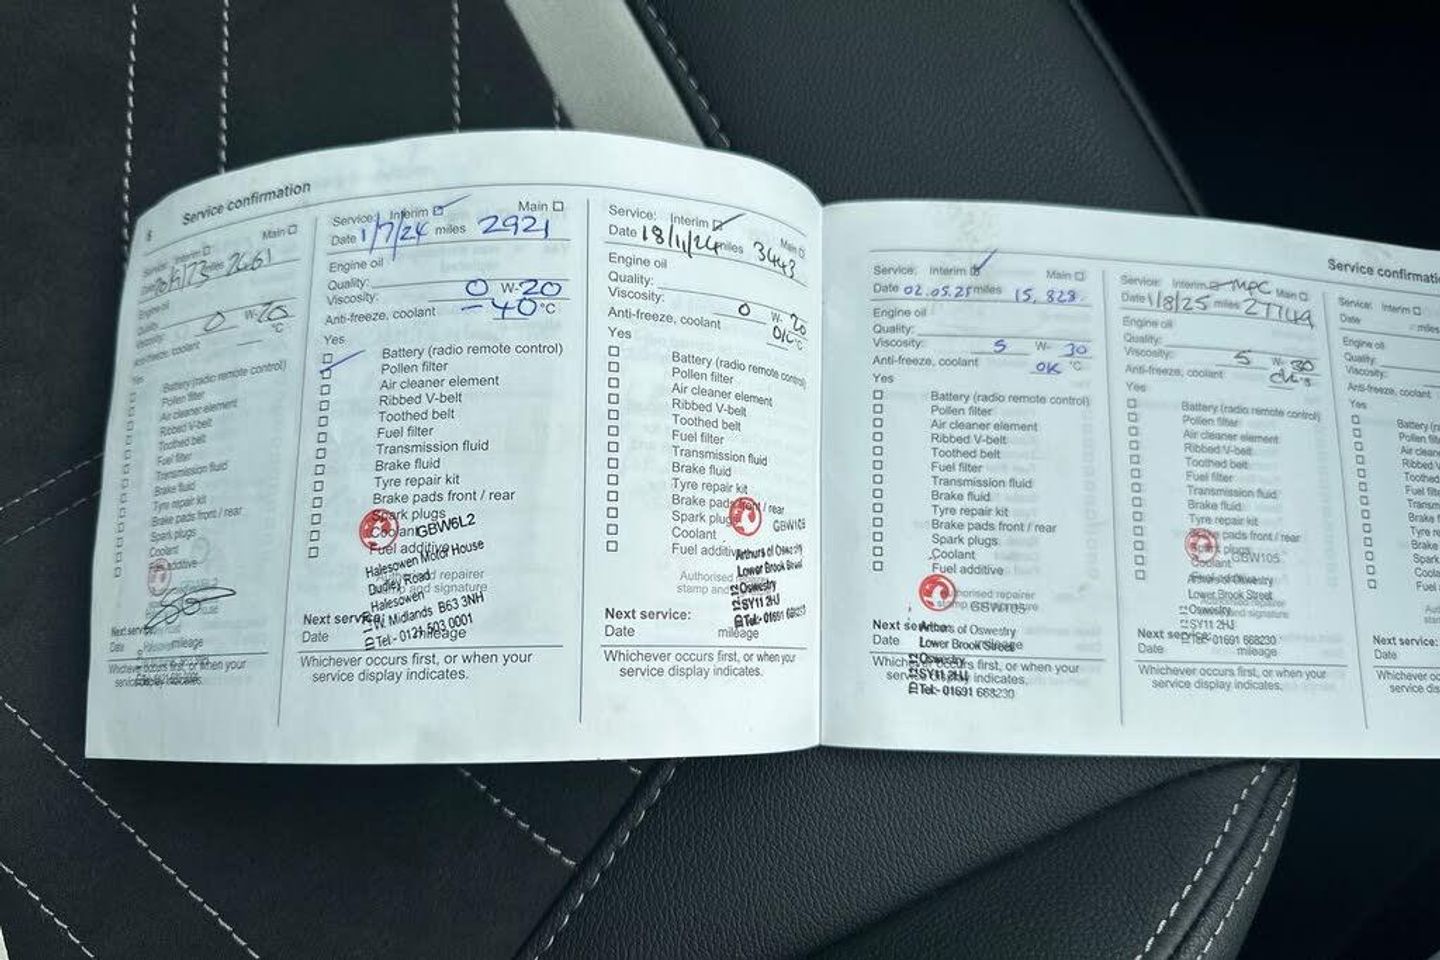 6 Service confirmation
Service: Interim Main
Date miles 2661
Engine oil
Quality:
Viscosity: 0 W-20
Anti-freeze, coolant °C
Yes
Battery (radio remote control)
Pollen filter
Air cleaner element
Ribbed V-belt
Toothed belt
Fuel filter
Transmission fluid
Brake fluid
Tyre repair kit
Brake pads front / rear
Spark plugs
Coolant
Fuel additive
Next service:
Date mileage
Whichever occurs first, or when your
service display indicates.
Service: Interim Main
Date 1/7/24 miles 2921
Engine oil
Quality:
Viscosity: 0 W-20
Anti-freeze, coolant -40 °C
Yes
Battery (radio remote control)
Pollen filter
Air cleaner element
Ribbed V-belt
Toothed belt
Fuel filter
Transmission fluid
Brake fluid
Tyre repair kit
Brake pads front / rear
Spark plugs
Coolant GBW6L2
Fuel additive
Halesowen Motor House
Authorised repairer
Dudley Road
stamp and signature
Halesowen
W Midlands B63 3NH
Next service:
Tel:- 0121 503 0001
Date mileage
Whichever occurs first, or when your
service display indicates.
Service: Interim Main
Date 18/11/24 miles 3443
Engine oil
Quality:
Viscosity: 0 W-20
Anti-freeze, coolant O/C °C
Yes
Battery (radio remote control)
Pollen filter
Air cleaner element
Ribbed V-belt
Toothed belt
Fuel filter
Transmission fluid
Brake fluid
Tyre repair kit
Brake pads front / rear
Spark plugs GBW105
Coolant
Fuel additive
Arthurs of Oswestry
Authorised
Lower Brook Street
stamp and
Oswestry
SY11 2HJ
Next service: Tel:- 01691 668230
Date mileage
Whichever occurs first, or when your
service display indicates.
Service confirmation
Service: Interim Main
Date 02.05.25 miles 15,828
Engine oil
Quality:
Viscosity: 5 W-30
Anti-freeze, coolant OK °C
Yes
Battery (radio remote control)
Pollen filter
Air cleaner element
Ribbed V-belt
Toothed belt
Fuel filter
Transmission fluid
Brake fluid
Tyre repair kit
Brake pads front / rear
Spark plugs
Coolant
Fuel additive
Authorised repairer
stamp and signature GBW105
Next service: Arthurs of Oswestry
Date mileage
Lower Brook Street
Whichever occurs first, or when your
Oswestry
service display indicates.
SY11 2HJ
Tel:- 01691 668230
Service: Interim MPC Main
Date 1/8/25 miles 27749
Engine oil
Quality:
Viscosity: 5 W-30
Anti-freeze, coolant °C
Yes
Battery (radio remote control)
Pollen filter
Air cleaner element
Ribbed V-belt
Toothed belt
Fuel filter
Transmission fluid
Brake fluid
Tyre repair kit
Brake pads front / rear
Spark plugs
Coolant GBW105
Arthurs of Oswestry
Lower Brook Street
Oswestry
SY11 2HJ
Next service: 01691 668230
Date mileage
Whichever occurs first, or when your
service display indicates.
Service: Interim
Date miles
Engine oil
Quality:
Viscosity:
Anti-freeze, coolant
Yes
Next service:
Date
Whichever
service